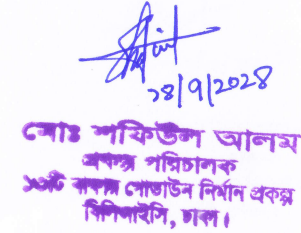 ২৪/৭/২০২৪
মোঃ শফিউল আলম
প্রকল্প পরিচালক
১৩টি বাফার গোডাউন নির্মান প্রকল্প
বিসিআইসি, ঢাকা।